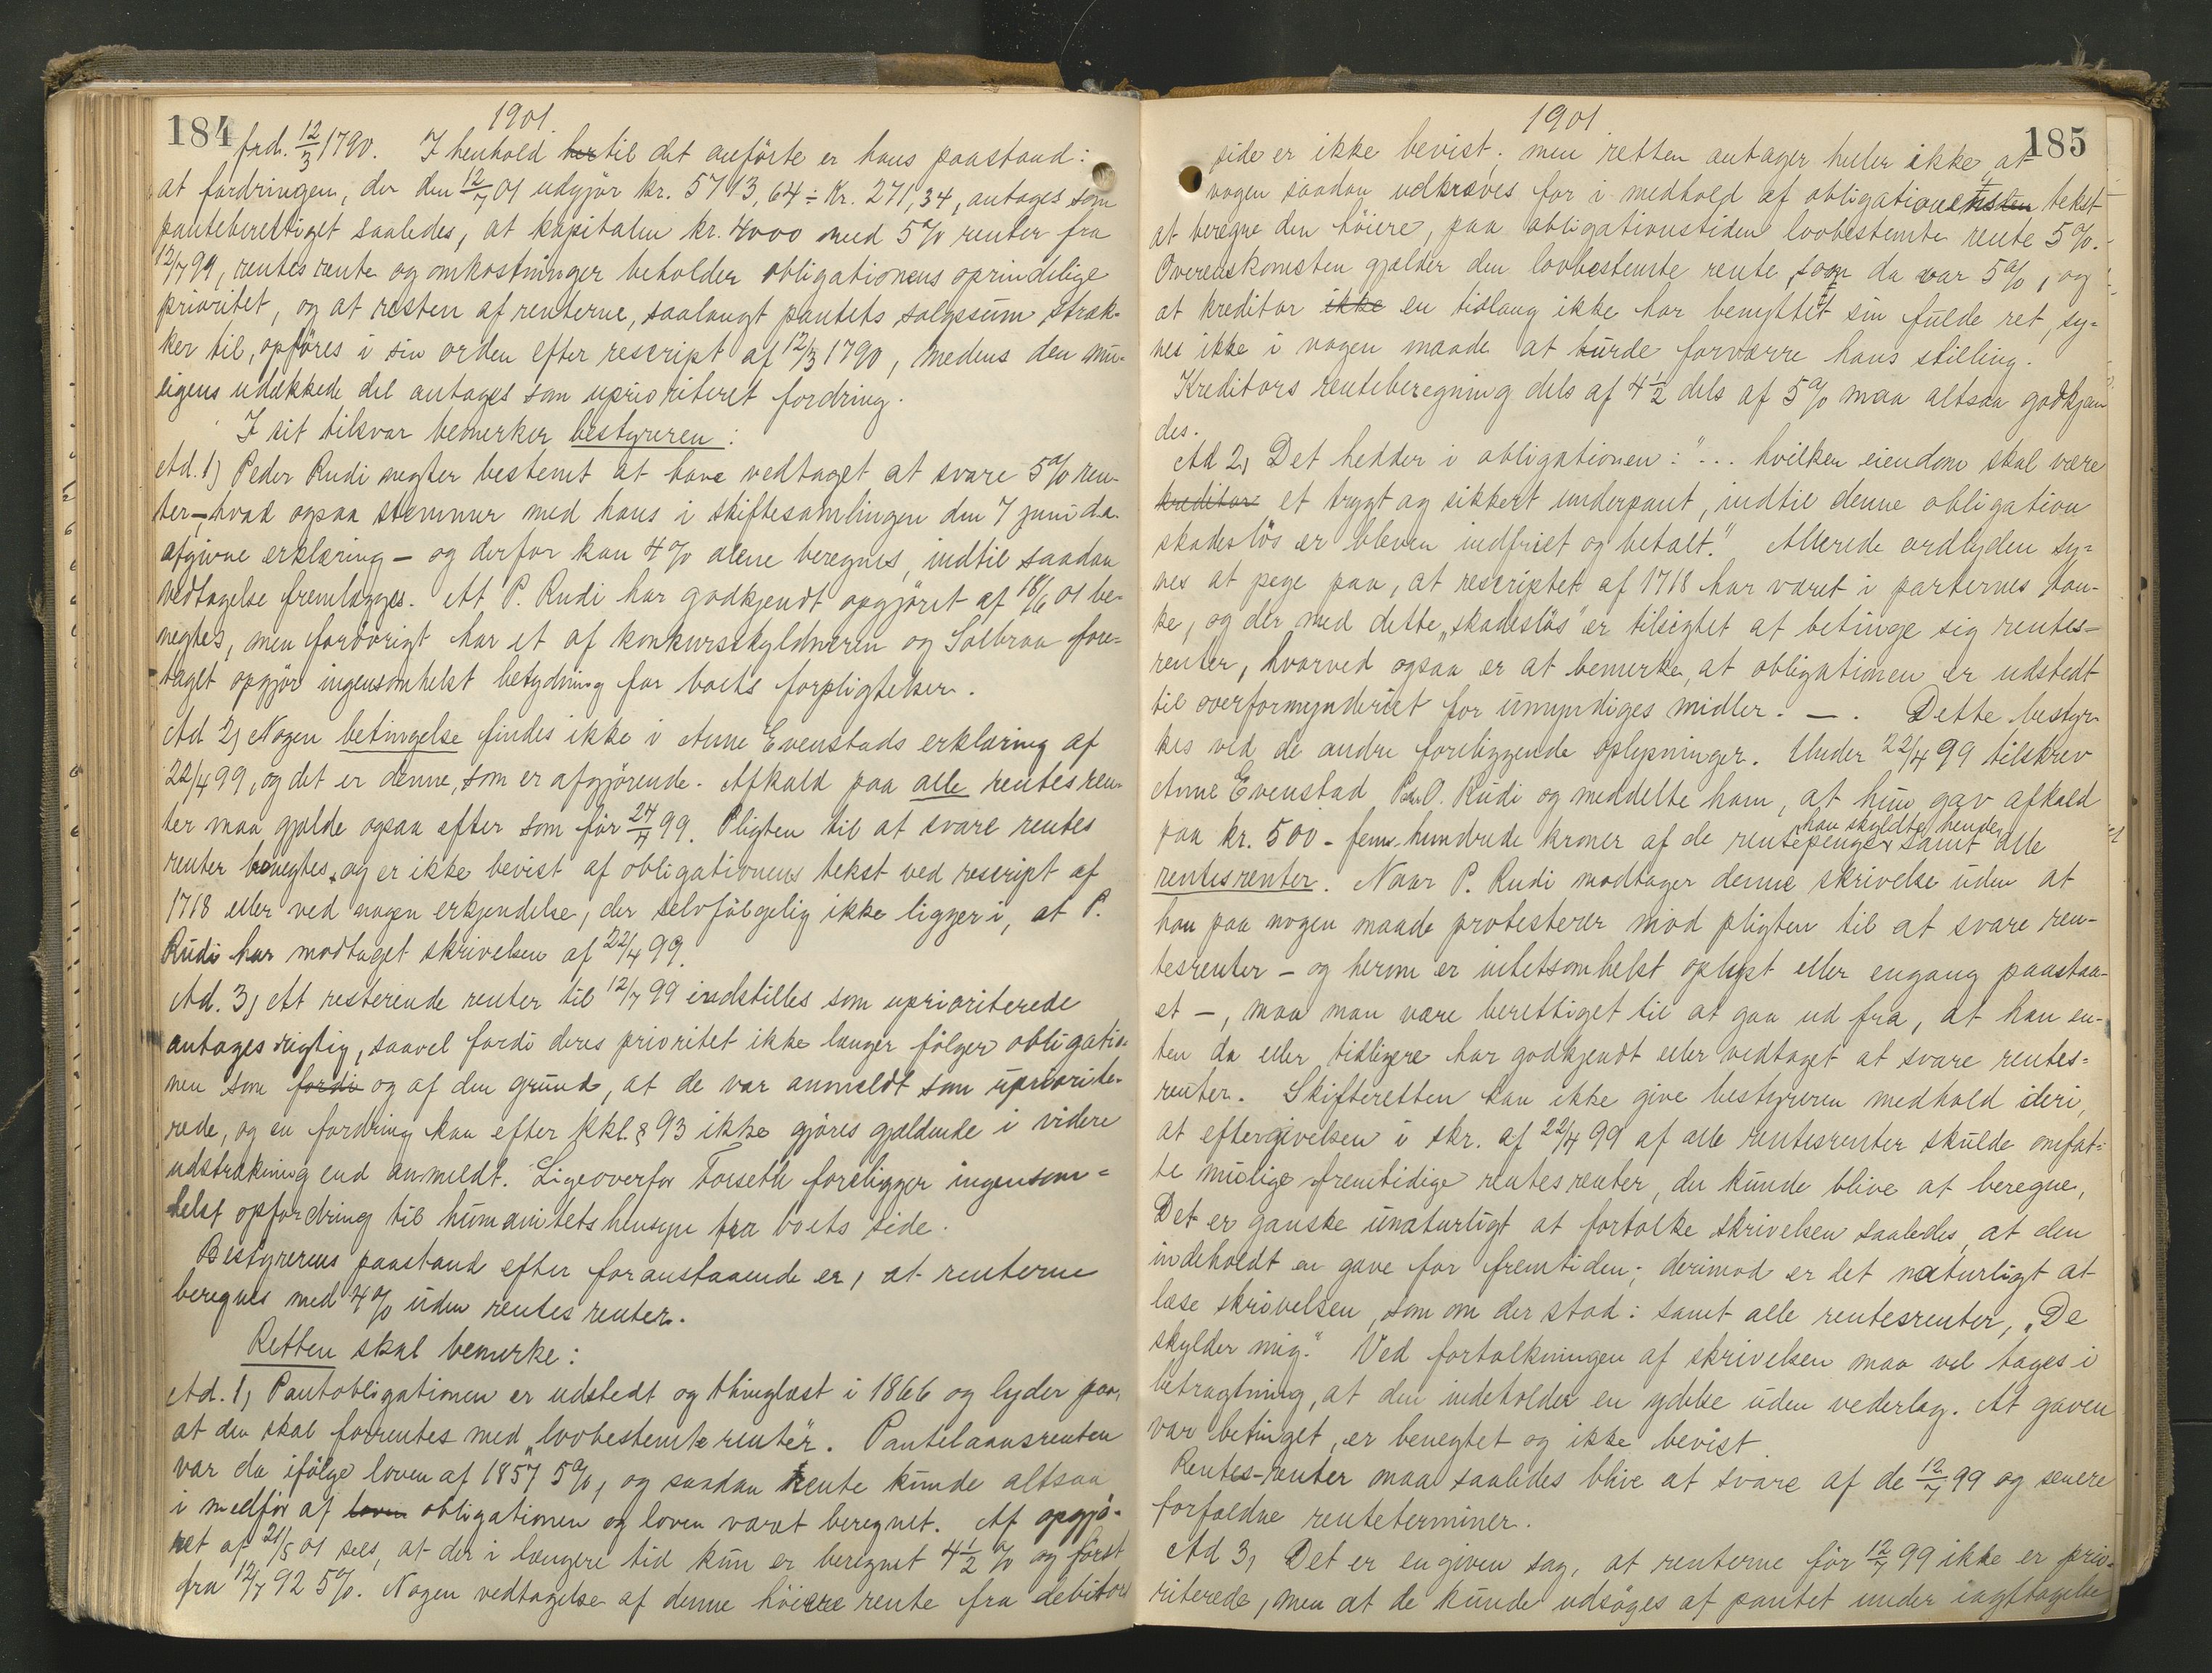 184
1901.
frd. 12/3 1790. I henhold her til det anförte er hans paastand:
at fordringen, der den 12/7 01 udgjör kr. 5713,64 ÷ Kr. 271,34, antages som
panteberettiget saaledes, at kapitalen kr. 4000 med 5 % renter fra
12/7 99, rentes rente og omkostninger beholder obligationens oprindelige
prioritet, og at resten af renterne, saalangt pantets salgssum stræk-
ker til, opföres i sin orden efter rescript af 12/3 1790, medens den mu-
ligens udækkede del antages som uprioriteret fordring.
I sit tilsvar bemerker bestyreren:
Ad. 1) Peder Rudi negter bestemt at have vedtaget at svare 5 % ren-
ter – hvad ogsaa stemmer med hans i skiftesamlingen den 7 juni d.a.
afgivne erklæring – og derfor kan 4 % alene beregnes, indtil saadan
vedtagelse fremlægges. At P. Rudi har godkjendt opgjöret af 18/6 01 be-
negtes, men forövrigt har et af konkursskyldneren og Solbraa fore-
taget opgjör ingensomhelst betydning for boets forpligtelser.
Ad 2) Nogen betingelse findes ikke i Anne Evenstads erklæring af
22/4 99, og det er denne, som er afgjörende. Afkald paa alle rentesren-
ter maa gjælde ogsaa efter som för 24/7 99. Pligten til at svare rentes
renter benegtes og er ikke bevist af obligationens tekst ved rescript af
1718 eller ved nogen erkjendelse, der selvfölgelig ikke ligger i, at P.
Rudi har modtaget skrivelsen af 22/4 99.
Ad. 3) At resterende renter til 12/7 99 indstilles som uprioriterede
antages rigtig, saavel fordi deres prioritet ikke længer fölger obligatio-
nen som fordi og af den grund, at de var anmeldt som uprioriterede
rede, og en fordring kan efter kkl. § 93 ikke gjöres gjældende i videre
udstrækning end anmeldt. Ligeoverfor Forseth foreligger ingensom-
helst opfordring til humanitets hensyn fra boets side.
Bestyrerens paastand efter foranstaaende er, at renterne
beregnes med 4 % uden rentes renter.
Retten skal bemerke:
Ad. 1) Pantobligationen er udstedt og thinglæst i 1866 og lyder paa,
at den skal forrentes med „lovbestemte renter". Pantelaansrenten
var da ifölge loven af 1857 5 %, og saadan rente kunde altsaa
i medför af loven obligationen og loven været beregnet. Af opgjö-
ret af 21/5 01 sees, at der i længere tid kun er beregnet 4 1/2 % og först
fra 12/7 92 5 %. Nogen vedtagelse af denne höiere rente fra debitors
1901
185
side er ikke bevist; men retten antager heller ikke, at
nogen saadan udkræves for i medhold af obligationens tekst
at beregne den höiere, paa obligationstiden lovbestemte rente 5 %.
Overenskomsten gjælder den lovbestemte rente, som da var 5 %, og
at kreditor ikke en tidlang ikke har benyttet sin fulde ret, sy-
nes ikke i nogen maade at burde forværre hans stilling.
Kreditors renteberegning dels af 4 1/2 dels af 5 % maa altsaa godkjen
des.
Ad 2, Det hedder i obligationen: "... hvilken eiendom skal være
kreditor et trygt og sikkert underpant, indtil denne obligation
skadeslös er bleven indfriet og betalt." Allerede ordlyden sy-
nes at pege paa, at rescriptet af 1718 har været i parternes tan-
ke, og der med dette „skadeslös" er tilsigtet at betinge sig rentes-
renter, hvorved ogsaa er at bemerke, at obligationen er udstedt
til overformynderiet for umyndiges midler. – . Dette bestyr-
kes ved de andre foreliggende oplysninger. Under 22/4 99 tilskrev
Anne Evenstad P. O. Rudi og meddelte ham, at hun gav afkald
han skyldte hende
paa kr. 500 – fem hundrede kroner af de rentepenger samt alle
rentesrenter. Naar P. Rudi modtager denne skrivelse uden at
han paa nogen maade protesterer mod pligten til at svare ren-
tesrenter – og herom er intetsomhelst oplyst eller engang paastaa-
et –, maa man være berettiget til at gaa ud fra, at han en-
ten da eller tidligere har godkjendt eller vedtaget at svare rentes-
renter. Skifteretten kan ikke give bestyreren medhold deri,
at eftergivelsen i skr. af 22/4 99 af alle rentesrenter skulde omfat-
te mulige fremtidige rentesrenter, der kunde blive at beregne,
Det er ganske unaturligt at fortolke skrivelsen saaledes, at den
indeholdt en gave for fremtiden; derimod er det naturligt at
læse skrivelsen, som om der stod: samt alle rentesrenter, „De
skylder mig." Ved fortolkningen af skrivelsen maa vel tages i
betragtning, at den indeholder en ydelse uden vederlag. At gaven
var betinget, er benegtet og ikke bevist.
Rentes-renter maa saaledes blive at svare af de 12/7 99 og senere
forfaldne renteterminer.
Ad 3, Det er en given sag, at renterne för 12/7 99 ikke er prio-
riterede, men at de kunde udsöges af pantet under iagttagelse